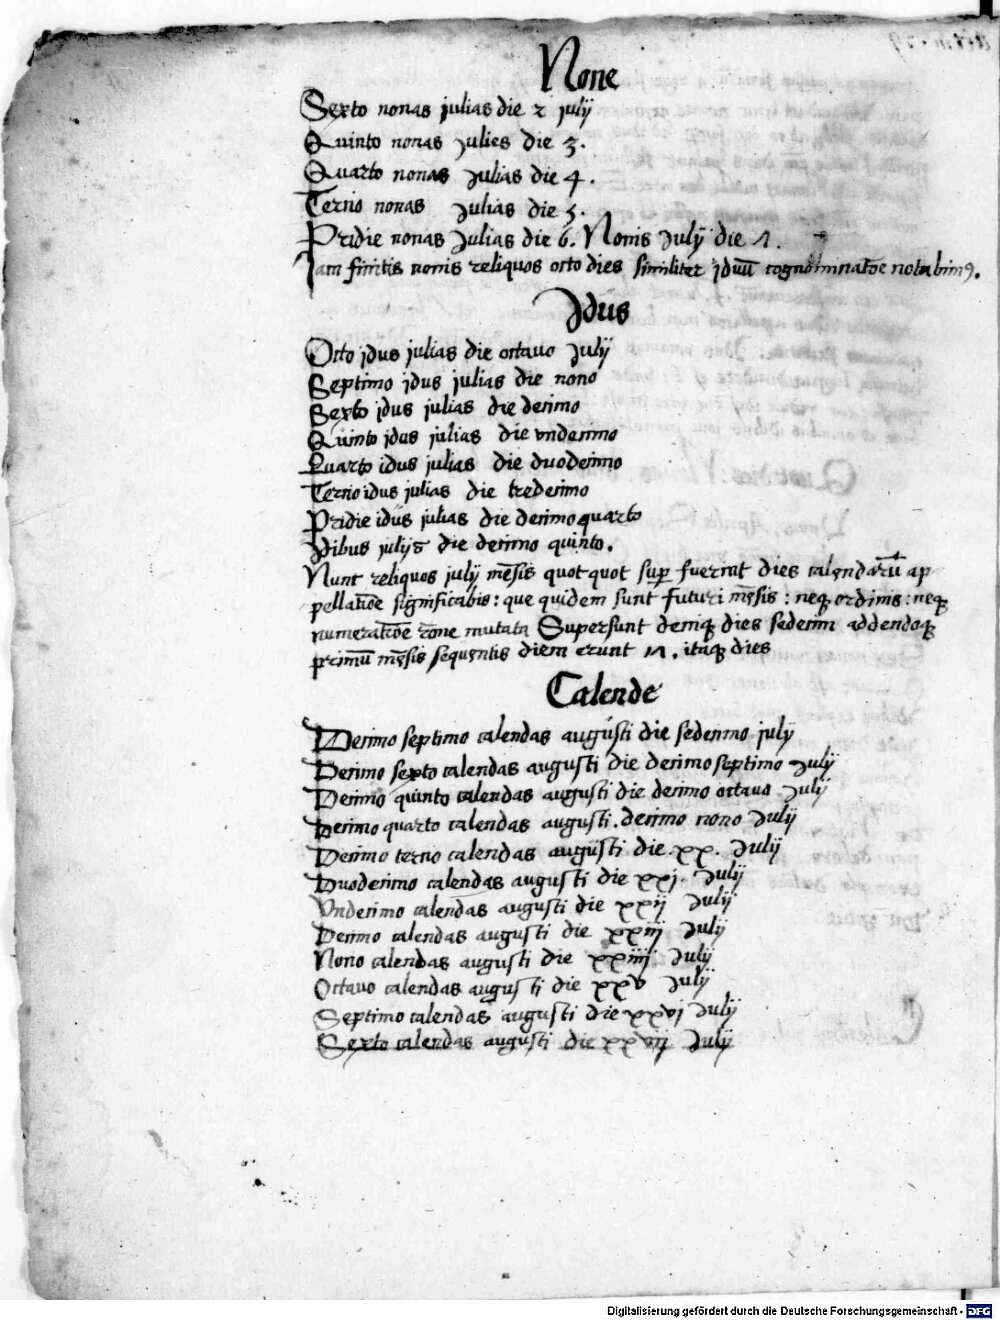 None
Sexto nonas julias die 2 julij
Quinto nonas Julies die 3.
Quarto nonas Julias die 4.
Tertio nonas Julias die 5.
Pridie nonas Julias die 6. Nonis Julij die 7.
Jam finitis nonis reliquos octo dies similiter jduũ cognominatōe notabimꝰ.
Jdus
Octo jdus julias die octauo Julij
Septimo jdus julias die nono
Sexto jdus julias die decimo
Quinto jdus julias die vndecimo
Quarto idus julias die duodecimo
Tertio idus julias die tredecimo
Pridie idus julias die decimoquarto
Jdibus julijs die decimo quinto.
Nunc reliquos julij mēsis quotquot sup fuerint dies calendarũ ap-
pellatiōe significabis: que quidem sunt futuri mēsis: neqꝫ ordinis: neqꝫ
numeratiōe rōne mutata Supersunt deniqꝫ dies sedecim addendoqꝫ
primũ mēsis sequentis diem erunt 17. itaqꝫ dies
Calende
Decimo septimo calendas augusti die sedecimo julij
Decimo sexto calendas augusti die decimo septimo Julij
Decimo quinto calendas augusti die decimo octauo Julij
Decimo quarto calendas augusti. decimo nono Julij
Decimo tertio calendas augusti die. xx. Julij
Duodecimo calendas augusti die xxj. Julij
Vndecimo calendas augusti die xxij Julij
Decimo calendas augusti die xxiij Julij
Nono calendas augusti die xxiiij Julij
Octauo calendas augusti die xxv Julij
Septimo calendas augusti die xxvj Julij
Sexto calendas augusti die xxvij Julij
Digitalisierung gefördert durch die Deutsche Forschungsgemeinschaft - DFG